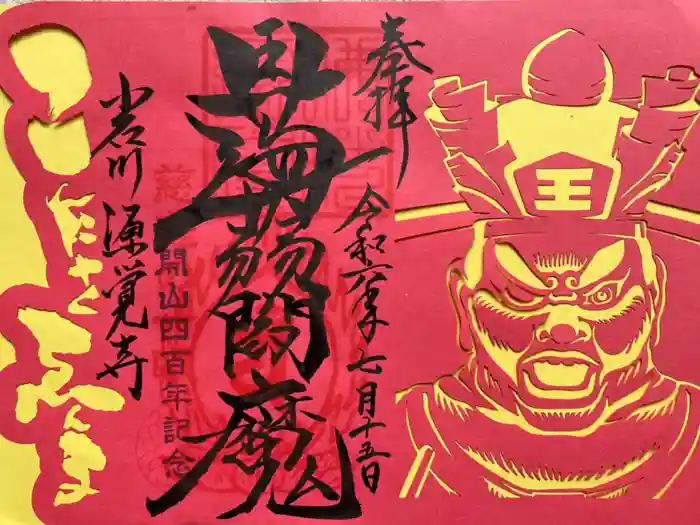 奉拝
令和六年七月十五日
王
蒟蒻閻魔
開山四百年記念
小石川 源覚寺
こんにゃくゑんま